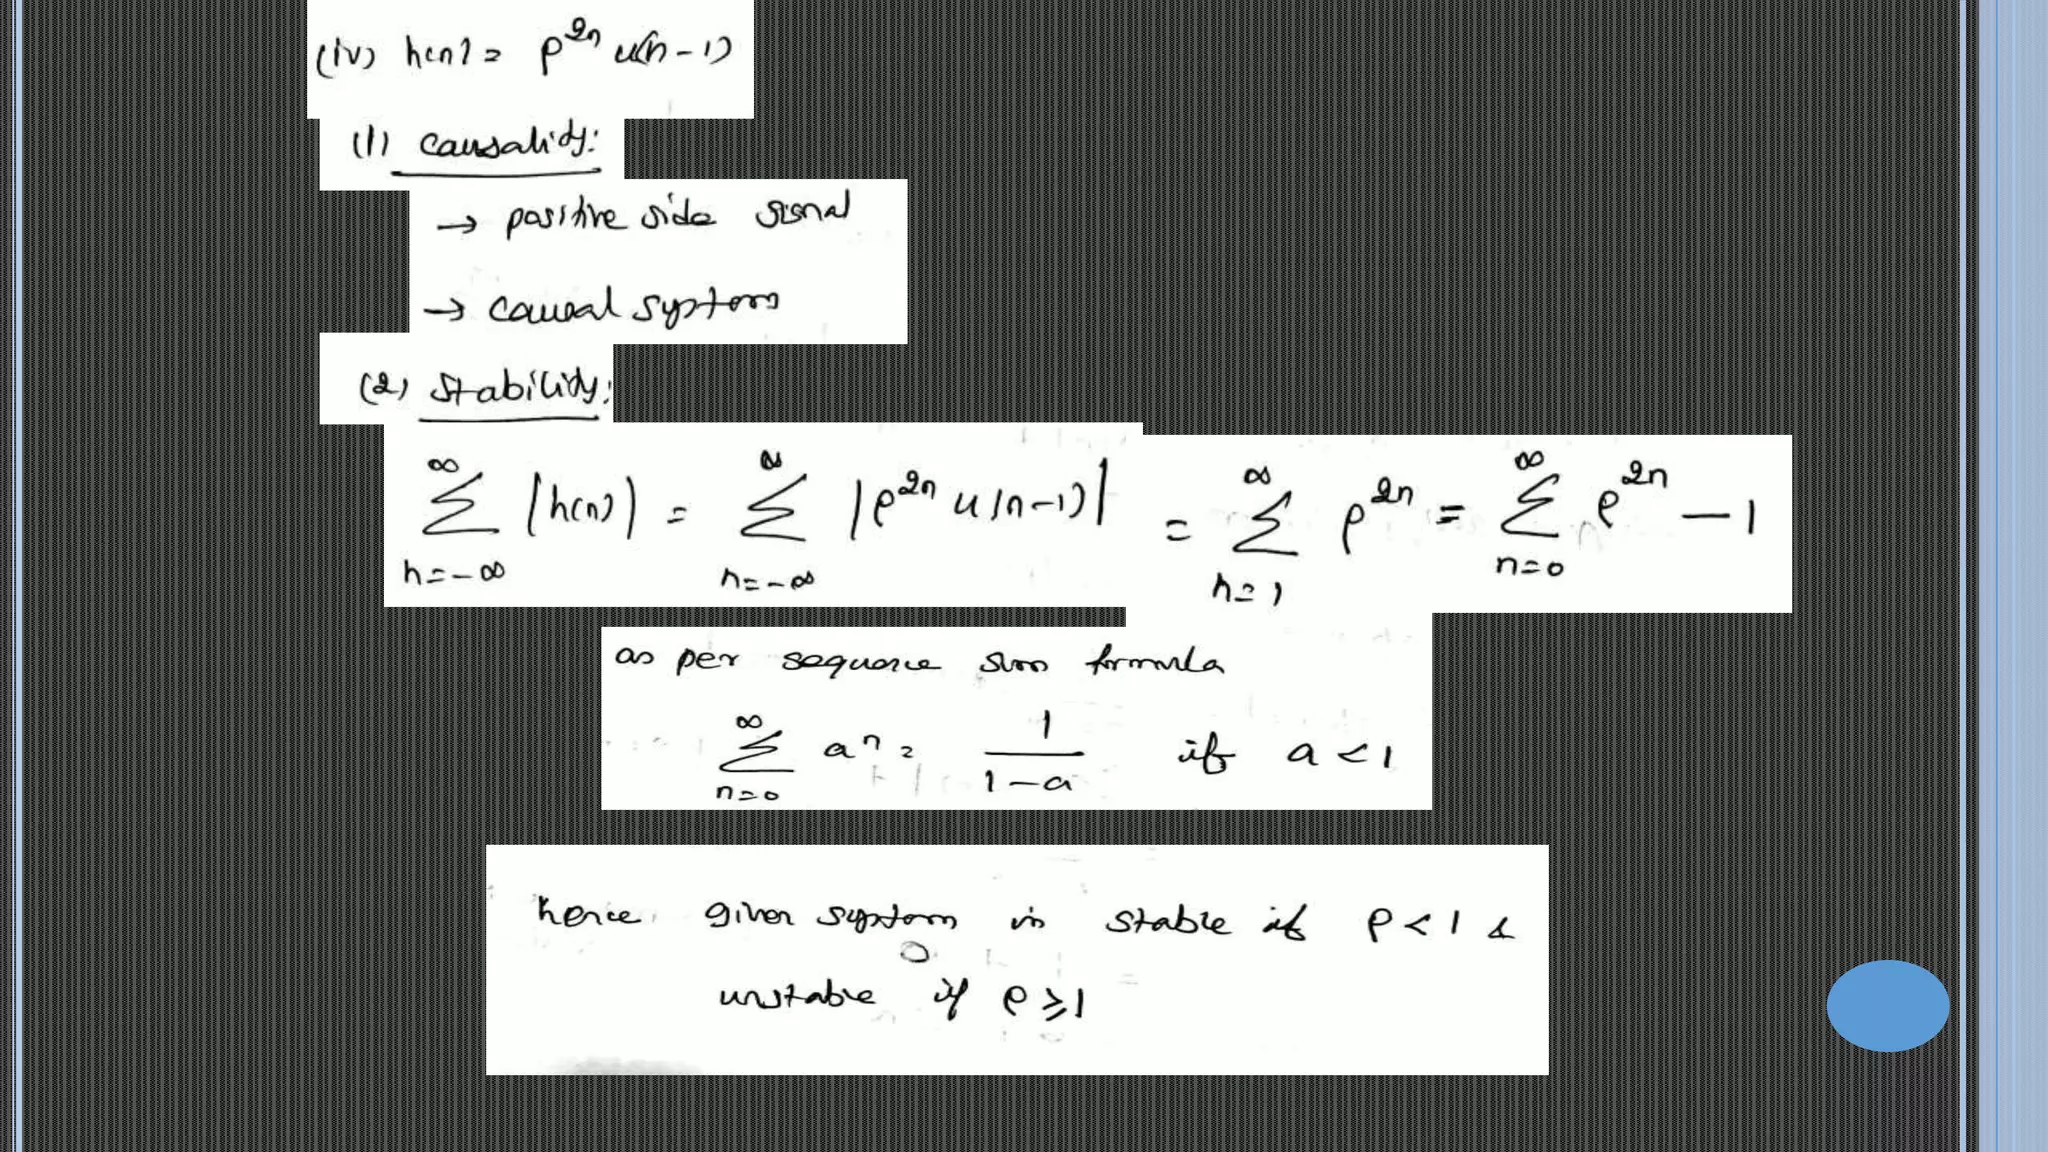 (iv) h(n) = ρ^{2n} u(n-1)
(1) causality:
→ positive side signal
→ causal system
(2) stability:
∞ Σ n=-∞ |h(n)| = ∞ Σ n=-∞ |ρ^{2n} u(n-1)| = ∞ Σ n=1 ρ^{2n} = ∞ Σ n=0 ρ^{2n} - 1
as per sequence sum formula
∞ Σ n=0 a^n = 1/(1-a) if a < 1
hence given system is stable if ρ < 1 &
unstable if ρ ≥ 1